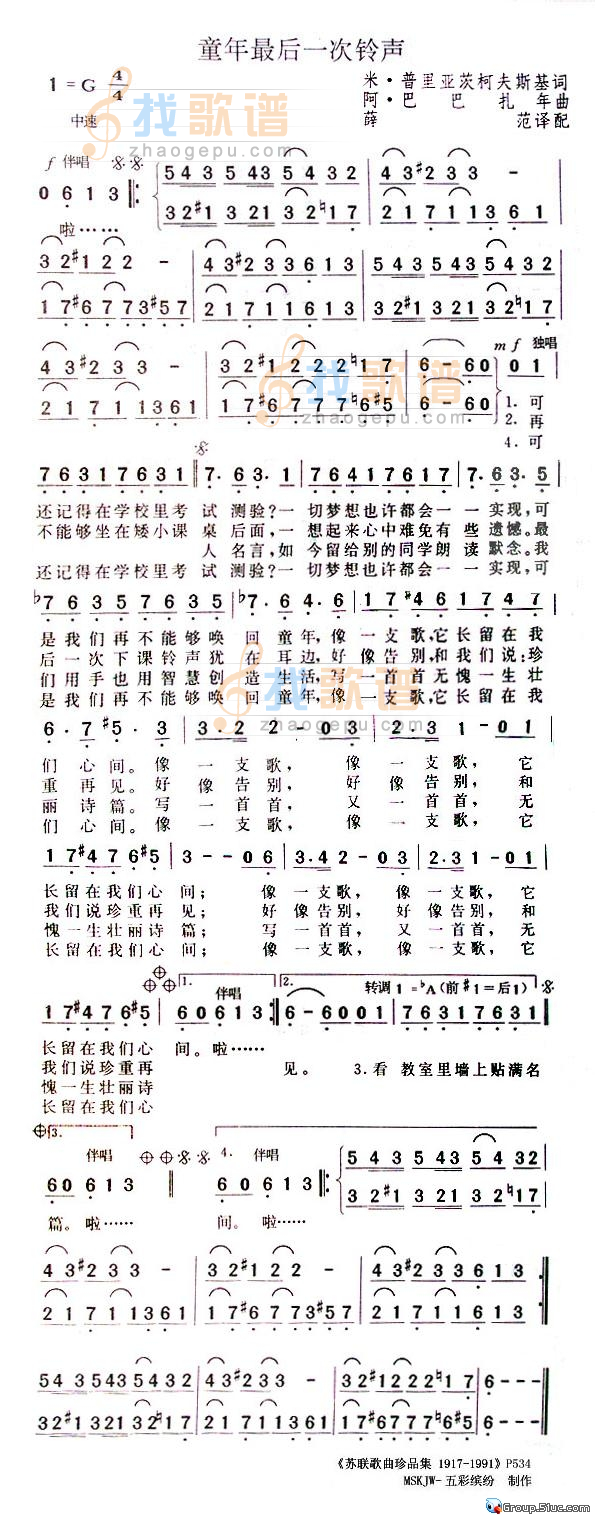 童年最后一次铃声
1=G 4/4
米·普里亚茨柯夫斯基词
阿·巴巴扎年曲
薛范译配
中速
找歌谱
zhaogepu.com
f 伴唱
0 6 1 3 ‖: 5 4 3 5 4 3 5 4 3 2 | 4 3 #2 3 3 -
3 2 #1 3 2 1 3 2 ♮1 7 | 2 1 7 1 1 3 6 1
啦……
3 2 #1 2 2 - | 4 3 #2 3 3 6 1 3 | 5 4 3 5 4 3 5 4 3 2
1 7 #6 7 7 3 #5 7 | 2 1 7 1 1 6 1 3 | 3 2 #1 3 2 1 3 2 ♮1 7
mf 独唱
4 3 #2 3 3 - | 3 2 #1 2 2 2 ♮1 7 | 6 - 6 0 | 0 1
2 1 7 1 1 3 6 1 | 1 7 #6 7 7 7 #6 #5 | 6 - 6 0
找歌谱
zhaogepu.com
1.可
2.再
4.可
7 6 3 1 7 6 3 1 ‖ 7· 6 3· 1 | 7 6 4 1 7 6 1 7 | 7· 6 3· 5
还记得在学校里考试测验?一切梦想也许都会一一实现,可
不能够坐在矮小课桌后面,一想起来心中难免有些遗憾。最
人名言,如今留给别的同学朗读默念。我
还记得在学校里考试测验?一切梦想也许都会一一实现,可
♭7 6 3 5 7 6 3 5 | ♭7· 6 4· 4 | 1 7 #4 6 1 7 4 7
是我们再不能够唤回童年,像一支歌,它长留在我
后一次下课铃声犹在耳边,好像告别,和我们说:珍
们用手也用智慧创造生活,写一首首无愧一生壮
是我们再不能够唤回童年,像一支歌,它长留在我
找歌谱
zhaogepu.com
6· 7 #5· 3 | 3·2 2 - 0 3 | 2·3 1 - 0 1
们心间。像一支歌,像一支歌,它
重再见。好像告别,好像告别,和
丽诗篇。写一首首,又一首首,无
们心间。像一支歌,像一支歌,它
1 7 #4 7 6 #5 | 3 - - 0 6 | 3·4 2 - 0 3 | 2·3 1 - 0 1
长留在我们心间;像一支歌,像一支歌,它
我们说珍重再见;好像告别,好像告别,和
愧一生壮丽诗篇;写一首首,又一首首,无
长留在我们心间;像一支歌,像一支歌,它
1. 伴唱 2. 转调 1=♭A(前#1=后1)
1 7 #4 7 6 #5 | 6 0 6 1 3 :‖ 6 - 6 0 0 1 | 7 6 3 1 7 6 3 1
长留在我们心间。啦……
我们说珍重再见。3.看教室里墙上贴满名
愧一生壮丽诗
长留在我们心
3. 伴唱 4. 伴唱
6 0 6 1 3 ‖ 6 0 6 1 3 ‖: 5 4 3 5 4 3 5 4 3 2
3 2 #1 3 2 1 3 2 ♮1 7
篇。啦…… 间。啦……
4 3 #2 3 3 - | 3 2 #1 2 2 - | 4 3 #2 3 3 6 1 3
2 1 7 1 1 3 6 1 | 1 7 #6 7 7 3 #5 7 | 2 1 7 1 1 6 1 3
5 4 3 5 4 3 5 4 3 2 | 4 3 #2 3 3 - | 3 2 #1 2 2 2 ♮1 7 | 6 - - -
3 2 #1 3 2 1 3 2 ♮1 7 | 2 1 7 1 1 3 6 1 | 1 7 #6 7 6 7 #6 #5 | 6 - - -
《苏联歌曲珍品集 1917-1991》P534
MSKJW-五彩缤纷 制作
Group.51uc.com